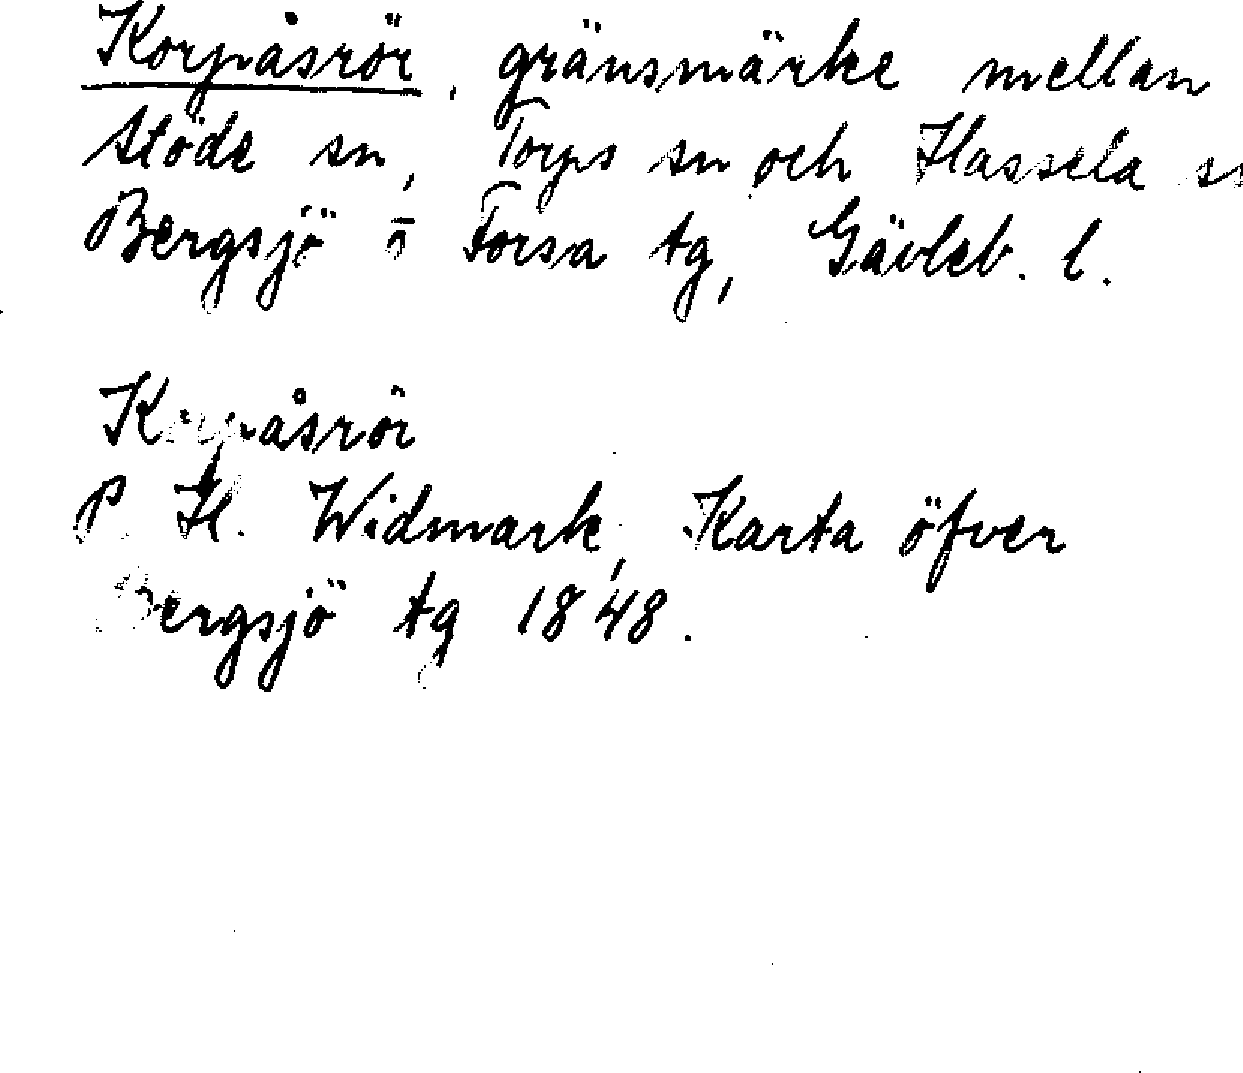 Korpåsrör, gränsmärke mellan
Stöde sn, Torps sn och Hassela sn
Bergsjö o Forsa tg, Gävleb. l.
Korpåsrör
P. H. Widmark, Karta öfver
Bergsjö tg 1848.